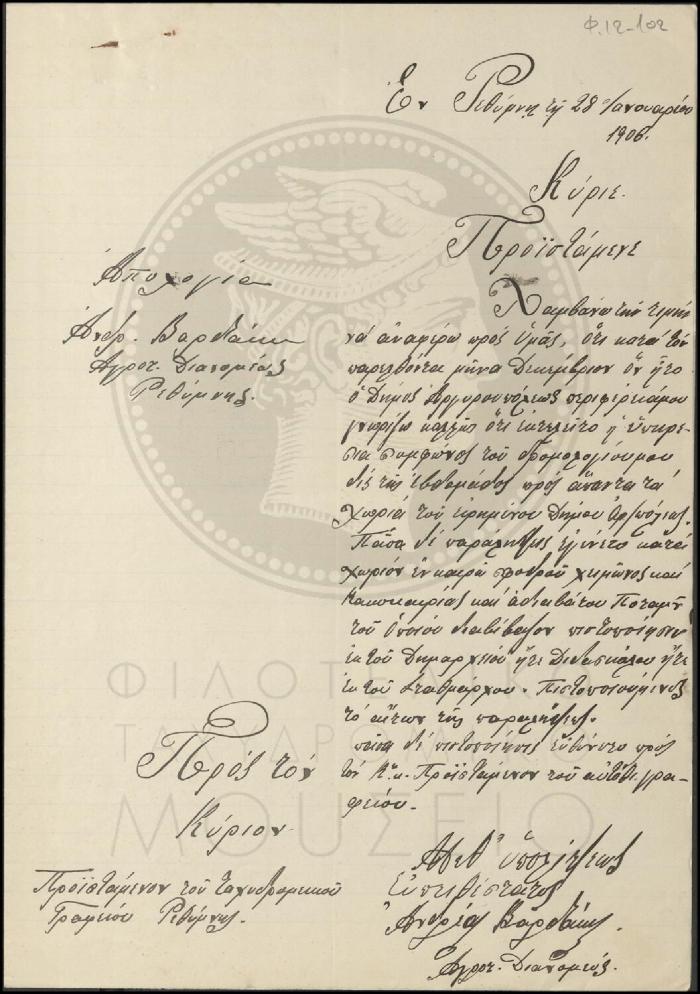 Φ.12-102
Ἐν Ρεθύμνῃ τῇ 28 Ἰανουαρίου
1906.
Κύριε
Προϊστάμενε
Ἀπολογία
Ἀνδρ. Βαρδάκη
Ἀγροτ. Διανομέως
Ρεθύμνης.
Λαμβάνω τήν τιμήν
νά ἀναφέρω πρός ὑμᾶς, ὅτι κατά τόν
παρελθόντα μῆνα Δεκέμβριον ὅν ἦτο
ὁ Δῆμος Ἀργυρουπόλεως περιφέρεια μου
γνωρίζω καλῶς ὅτι ἐκτελεῖτο ἡ ὑπηρε-
σία συμφώνως τοῦ δρομολογίου μου
δίς τῆς ἑβδομάδος πρός ἅπαντα τά
χωριά τοῦ εἰρημένου Δήμου
Πᾶσα δέ παράληψις ἐγίνετο κατά
χωρίον ἐν καιρῷ σφοδροῦ χειμῶνος καί
κακοκαιρίας καί ἀδιαβάτου Ποταμοῦ
τοῦ ὁποίου διεβίβαζον πιστοποίησιν
ἐκ τοῦ Δημαρχείου ἤτε Διδασκάλου ἤτε
ἐκ τοῦ Σταθμάρχου. Πιστοποιουμένης
τό αἴτιον τῆς παραλήψεως.
πᾶσα δέ πιστοποίησις εὐθύνετο πρός
τόν Κον κ. Προϊστάμενον τοῦ αὐτόθι γρα-
φείου.
Πρός τόν
Κύριον
Προϊστάμενον τοῦ ταχυδρομικοῦ
Γραφείου Ρεθύμνης.
Μεθ' ὑπολήψεως
Εὐπειθέστατος
Ἀνδρέας Βαρδάκης.
Ἀγροτ. Διανομεύς.
ΦΙΛΟΤΕΛΙΚΟ
ΤΑΧΥΔΡΟΜΙΚΟ
ΜΟΥΣΕΙΟ